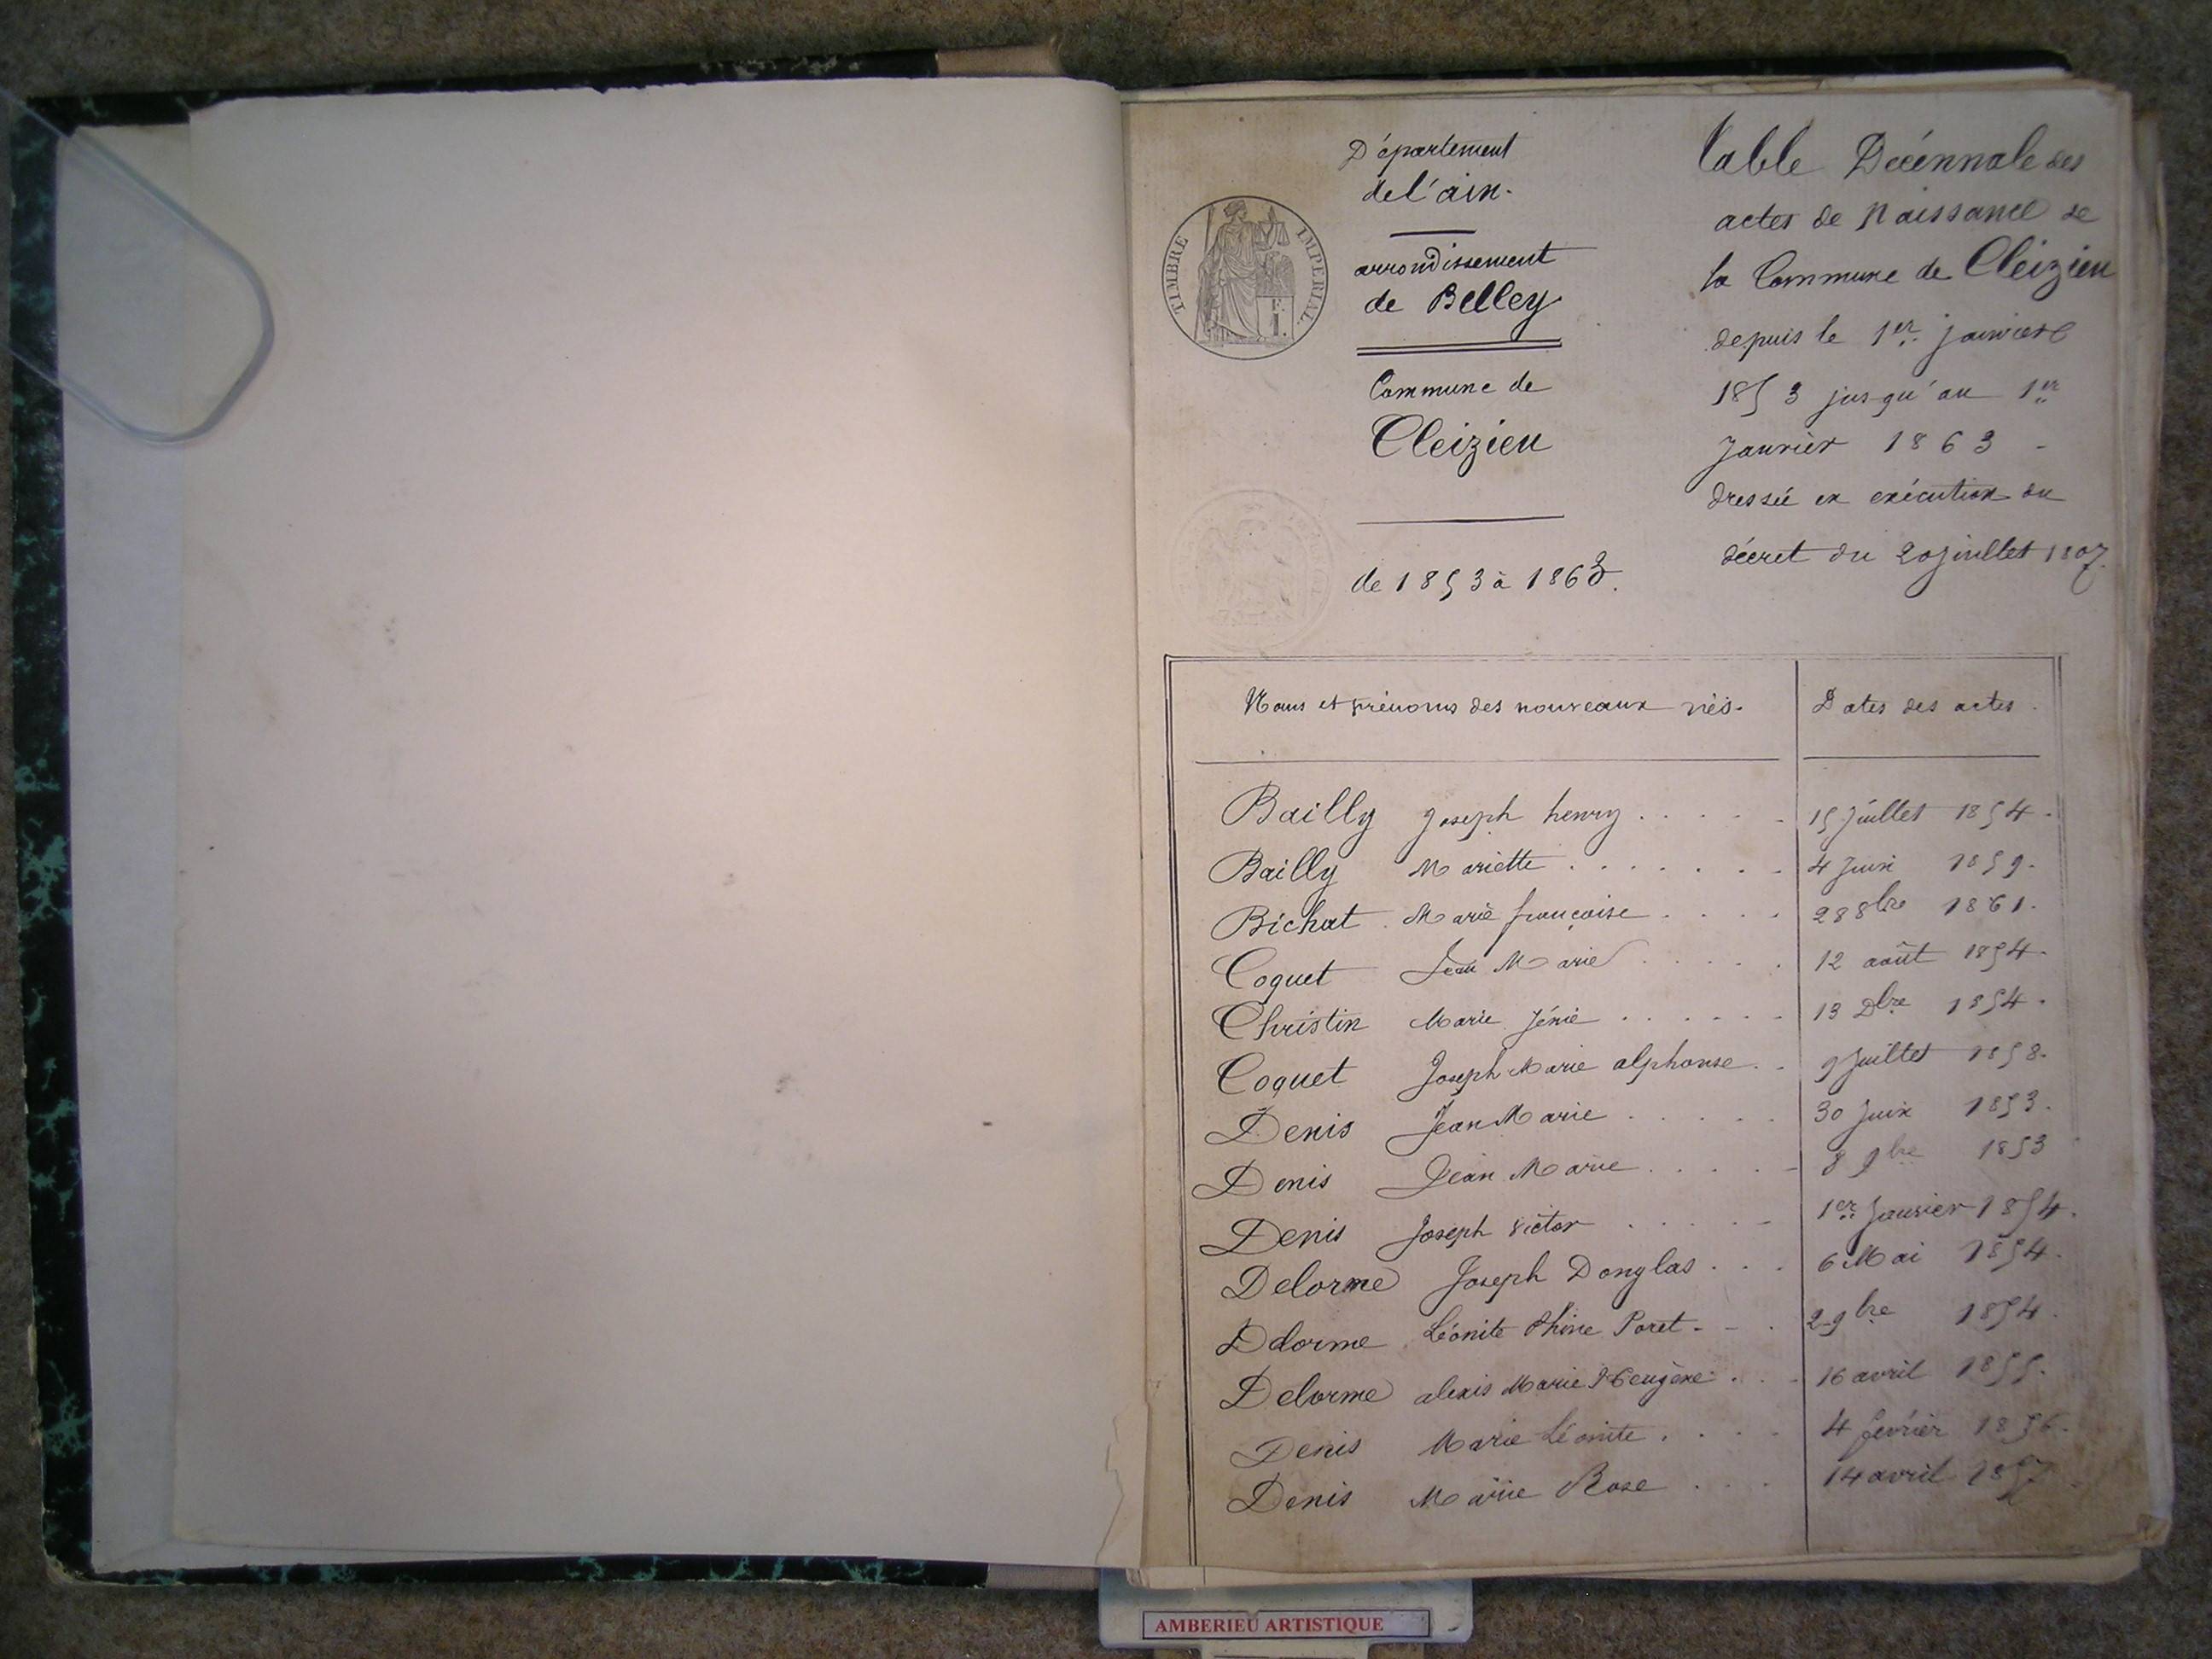 Département
de l'ain.
arrondissement
de Belley
Commune de
Cleizieu
de 1853 à 1863.
TIMBRE IMPERIAL.
Table Décénnale des
actes de Naissance de
la Commune de Cleizieu
depuis le 1er janvier
1853 jusqu'au 1er
Janvier 1863 -
dressée en exécution du
décret du 20 juillet 1807.
Noms et prénoms des nouveaux nés. Dates des actes.
Bailly Joseph henry . . . . . 15 Juillet 1854.
Bailly Mariette . . . . . . . 4 Juin 1859.
Bichat Marie françoise . . . . 28 8bre 1861.
Coquet Jean Marie . . . . . 12 août 1854.
Christin Marie Jénie . . . . . . 13 Dbre 1854.
Coquet Joseph Marie alphonse . . 9 Juillet 1858.
Denis Jean Marie . . . . . 30 Juin 1853.
Denis Jean Marie . . . . . 8 9bre 1853
Denis Joseph victor . . . . . 1er Janvier 1854.
Delorme Joseph Douglas . . . 6 Mai 1854.
Delorme Léonite 2 9bre 1854.
Delorme alexis Marie . . . 16 avril 1855.
Denis Marie Léonite . . . . 4 février 1856.
Denis Marie Rose . . . . 14 avril 1857
AMBERIEU ARTISTIQUE